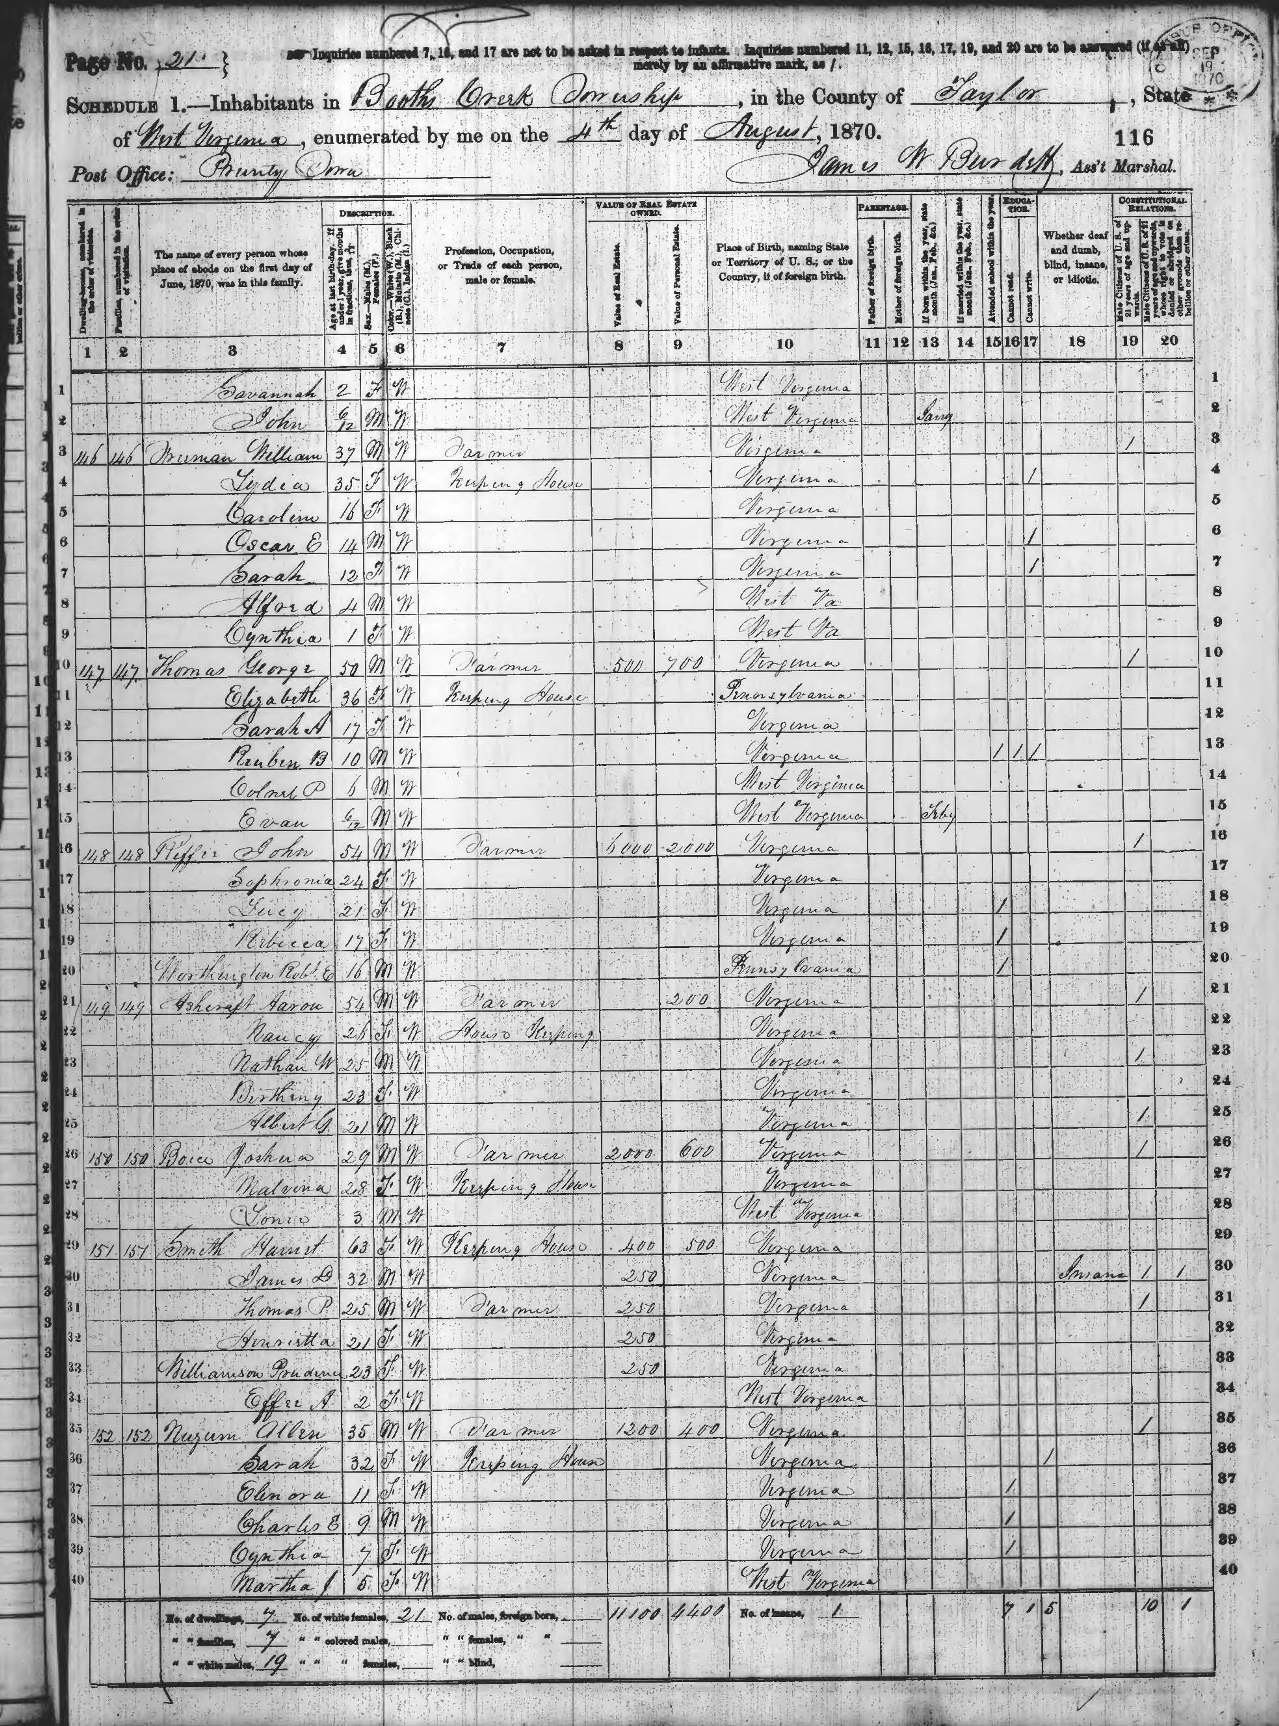 Page No. 21
Inquiries numbered 7, 16, and 17 are not to be asked in respect to infants. Inquiries numbered 11, 12, 15, 16, 17, 19, and 20 are to be answered (if at all)
merely by an affirmative mark, as /.
SEP 19 1870
SCHEDULE 1.—Inhabitants in Booths Creek Township, in the County of Taylor, State
of West Virginia, enumerated by me on the 4th day of August, 1870.
116
Post Office:
James W Burdett, Ass't Marshal.
DESCRIPTION. VALUE OF REAL ESTATE OWNED. PARENTAGE. EDUCATION. CONSTITUTIONAL RELATIONS.
Dwelling-houses, numbered in the order of visitation.
Families, numbered in the order of visitation.
The name of every person whose place of abode on the first day of June, 1870, was in this family.
Age at last birth-day. If under 1 year, give months in fractions, thus, 3/12
Sex.—Males (M.), Females (F.)
Color.—White (W.), Black (B.), Mulatto (M.), Chinese (C.), Indian (I.)
Profession, Occupation, or Trade of each person, male or female.
Value of Real Estate.
Value of Personal Estate.
Place of Birth, naming State or Territory of U. S.; or the Country, if of foreign birth.
Father of foreign birth.
Mother of foreign birth.
If born within the year, state month (Jan., Feb., &c.)
If married within the year, state month (Jan., Feb., &c.)
Attended school within the year.
Cannot read.
Cannot write.
Whether deaf and dumb, blind, insane, or idiotic.
Male Citizens of U. S. of 21 years of age and upwards.
Male Citizens of U. S. of 21 years of age and upwards, whose right to vote is denied or abridged on other grounds than rebellion or other crime.
1 2 3 4 5 6 7 8 9 10 11 12 13 14 15 16 17 18 19 20
1 Savannah 2 F W West Virginia 1
2 John 6/12 M W West Virginia 2
3 146 146 William 37 M W Farmer Virginia 1 3
4 Lydia 35 F W Keeping House Virginia 1 4
5 Caroline 16 F W Virginia 5
6 Oscar E 14 M W Virginia 1 6
7 Sarah 12 F W Virginia 1 7
8 Alfred 4 M W West Va 8
9 Cynthia 1 F W West Va 9
10 147 147 Thomas George 50 M W Farmer 500 700 Virginia 1 10
11 Elizabeth 36 F W Keeping House Pennsylvania 11
12 Sarah A 17 F W Virginia 12
13 Reuben B 10 M W Virginia 1 1 1 13
14 P 6 M W West Virginia 14
15 Evan 6/12 M W West Virginia 15
16 148 148 John 54 M W Farmer 6000 2000 Virginia 1 16
17 Sophronia 24 F W Virginia 17
18 Lucy 21 F W Virginia 1 18
19 Rebecca 17 F W Virginia 1 19
20 Worthington Robt. E 16 M W Pennsylvania 1 20
21 149 149 Ashcraft Aaron 54 M W Farmer 200 Virginia 1 21
22 Nancy 26 F W House Keeping Virginia 22
23 Nathan W 25 M W Virginia 1 23
24 23 F W Virginia 24
25 Albert G. 21 M W Virginia 1 25
26 150 150 Boice Joshua 29 M W Farmer 2000 600 Virginia 1 26
27 Malvina 28 F W Keeping House Virginia 27
28 3 M W West Virginia 28
29 151 151 Smith Harriet 63 F W Keeping House 400 500 Virginia 29
30 James D 32 M W 250 Virginia Insane 1 1 30
31 Thomas P. 25 M W Farmer 250 Virginia 1 31
32 Henrietta 21 F W 250 Virginia 32
33 Williamson Prudence 23 F W 250 Virginia 33
34 Effie A 2 F W West Virginia 34
35 152 152 Nuzum Allen 35 M W Farmer 1200 400 Virginia 1 35
36 Sarah 32 F W Keeping House Virginia 1 36
37 Elenora 11 F W Virginia 1 37
38 Charles E 9 M W Virginia 1 38
39 Cynthia 7 F W Virginia 1 39
40 Martha J 5 F W West Virginia 40
No. of dwellings, 7 No. of white females, 21 No. of males, foreign born, 11100 4400 No. of insane, 1 7 1 5 10 1
" " families, 7 " " colored males, " " females, " "
" " white males, 19 " " " females, " " blind,